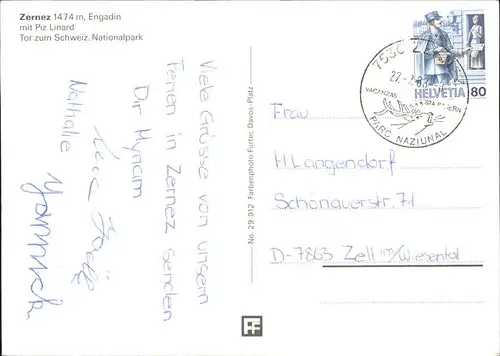 Zernez 1474 m, Engadin
mit Piz Linard
Tor zum Schweiz. Nationalpark
Viele Grüsse von unsern
Ferien in Zernez senden
Dir Myriam
Nathalie
Yannick
No. 29 912 Farbenphoto Furter, Davos-Platz
7530 ZE
27.-7.
VACANZAS
PARC NAZIUNAL
HELVETIA 80
Frau
H. Langendorf
Schönauerstr. 71
D-7863 Zell im/Wiesental
FF